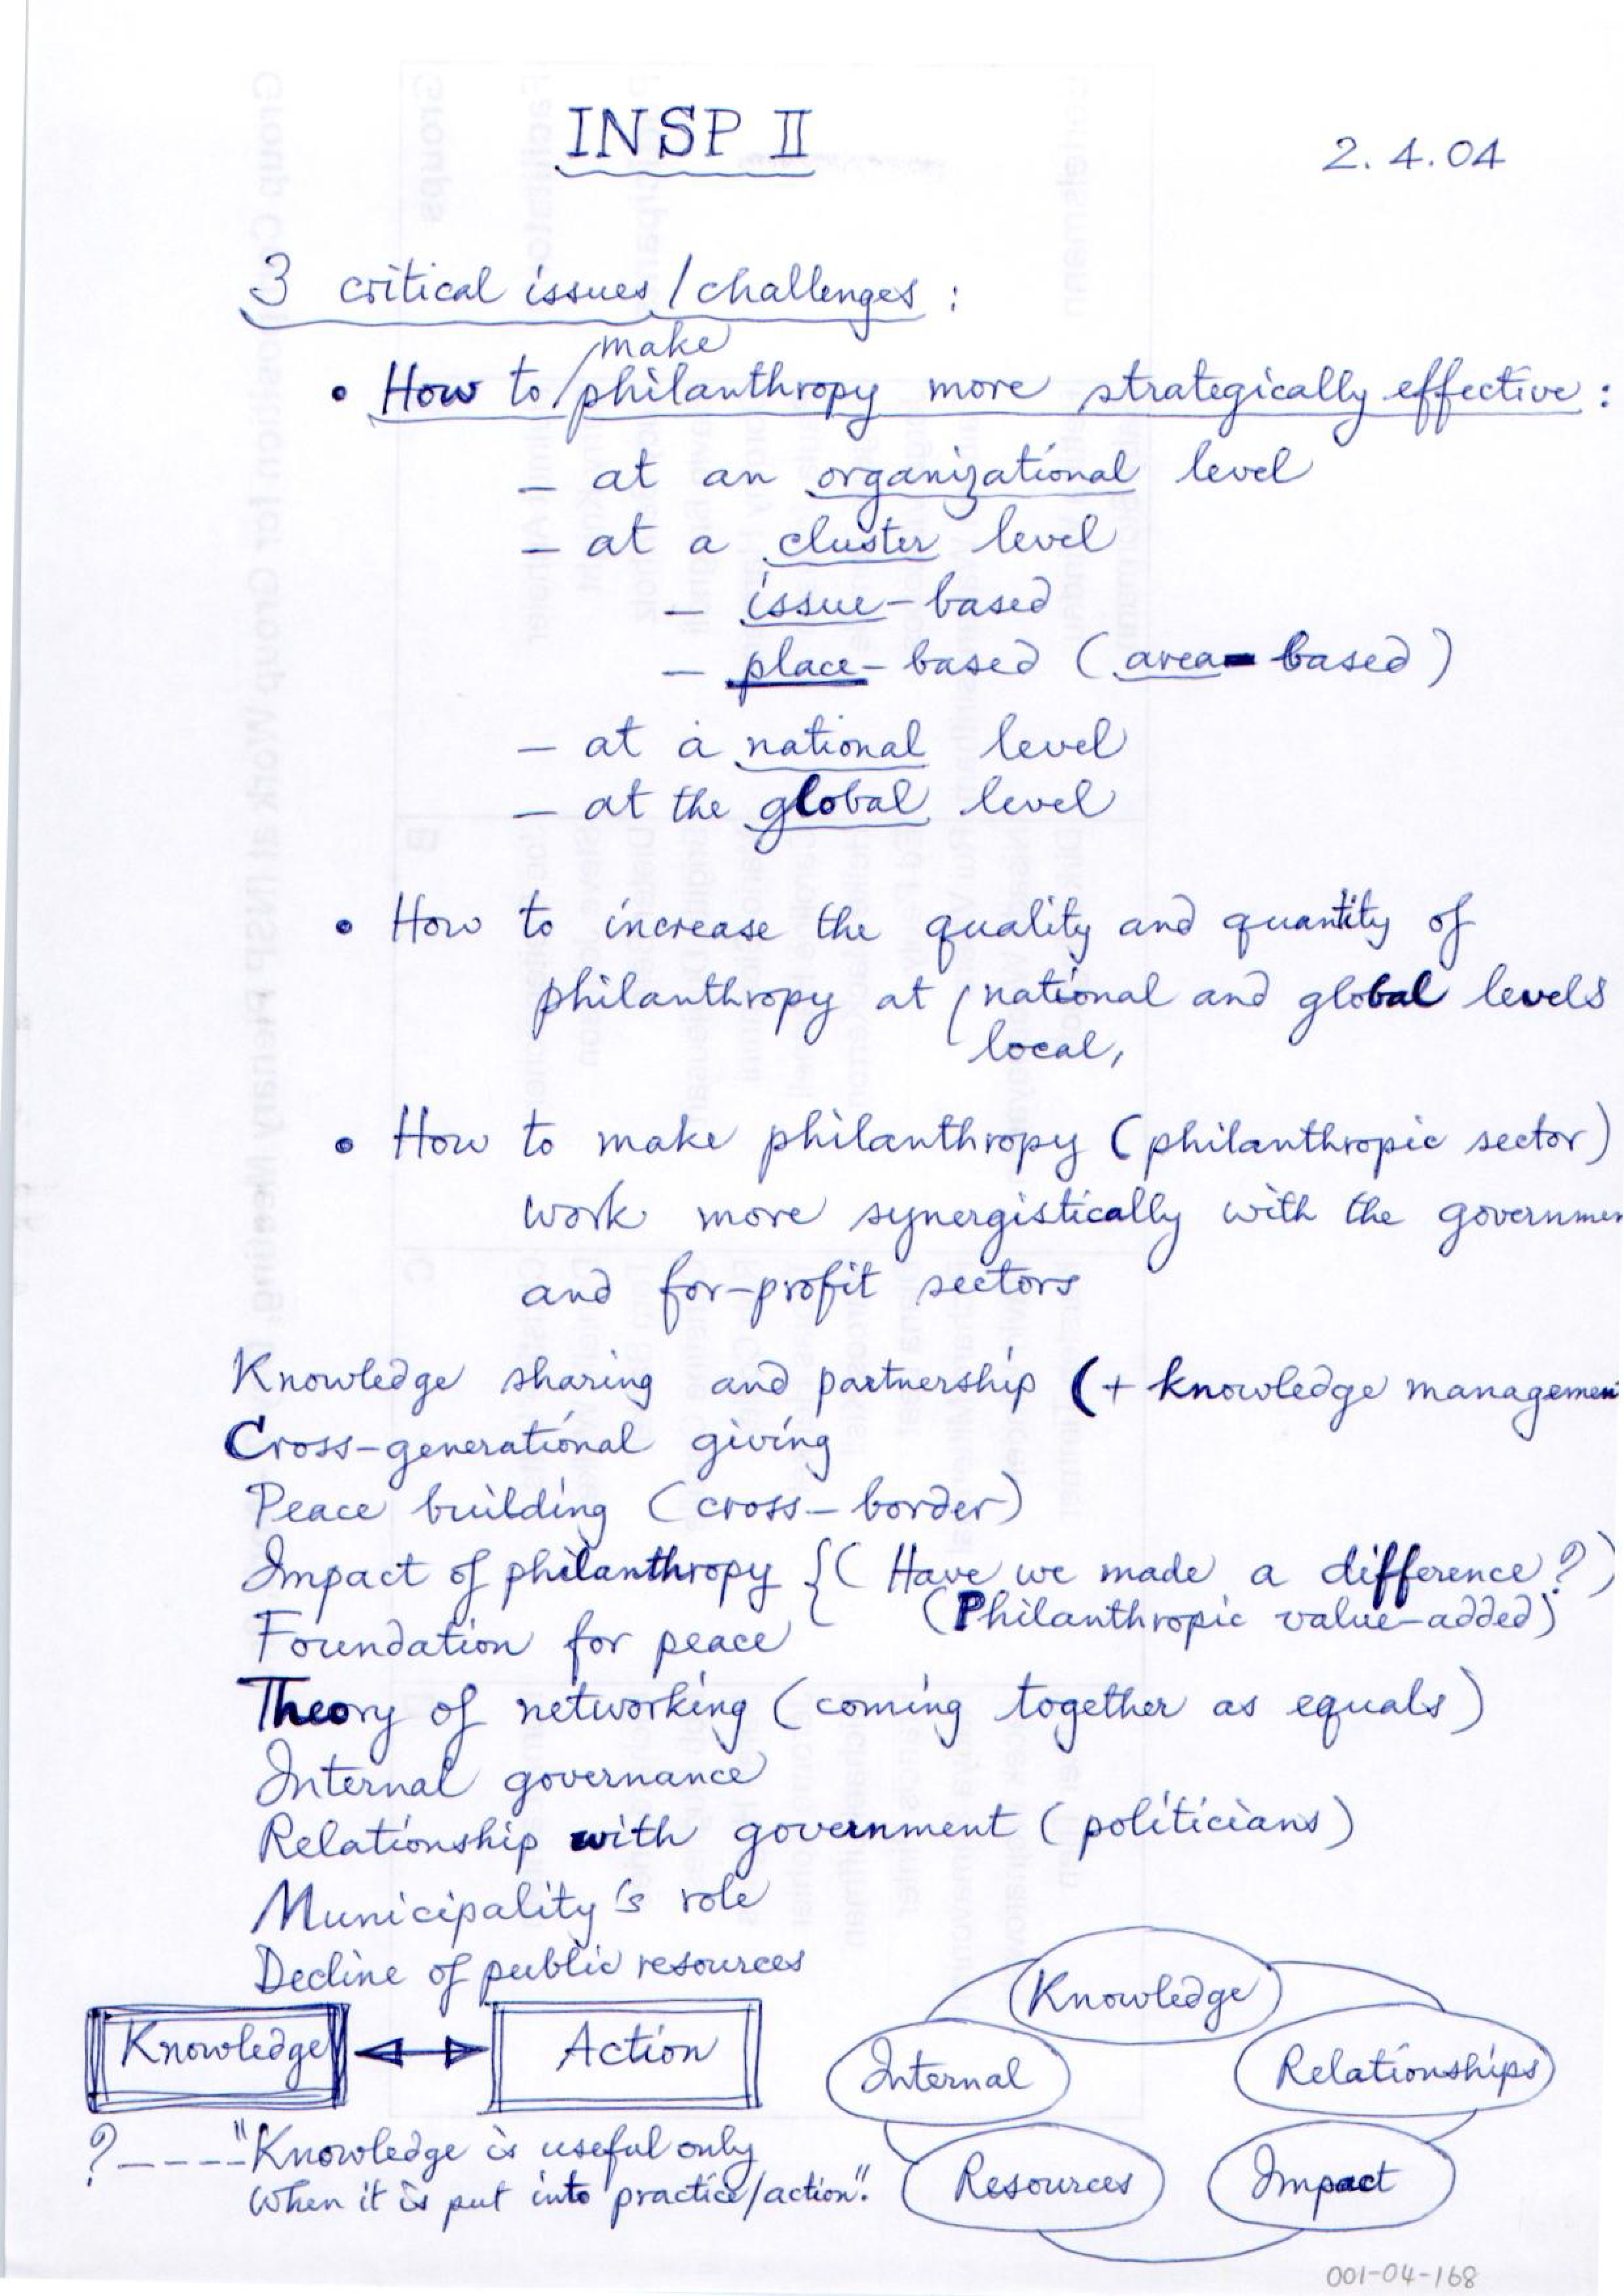 INSP II
2.4.04
3 critical issues / challenges :
make
• How to philanthropy more strategically effective :
— at an organizational level
— at a cluster level
— issue-based
— place-based (area-based)
— at a national level
— at the global level
• How to increase the quality and quantity of
philanthropy at national and global levels
local,
• How to make philanthropy (philanthropic sector)
work more synergistically with the governmen
and for-profit sectors
Knowledge sharing and partnership (+ knowledge managemen
Cross-generational giving
Peace building (cross-border)
Impact of philanthropy {( Have we made a difference?)
(Philanthropic value-added)
Foundation for peace
Theory of networking (coming together as equals)
Internal governance
Relationship with government (politicians)
Municipality's role
Decline of public resources
Knowledge Action
? ---- "Knowledge is useful only
when it is put into practice/action".
Knowledge
Internal Relationships
Resources Impact
001-04-168